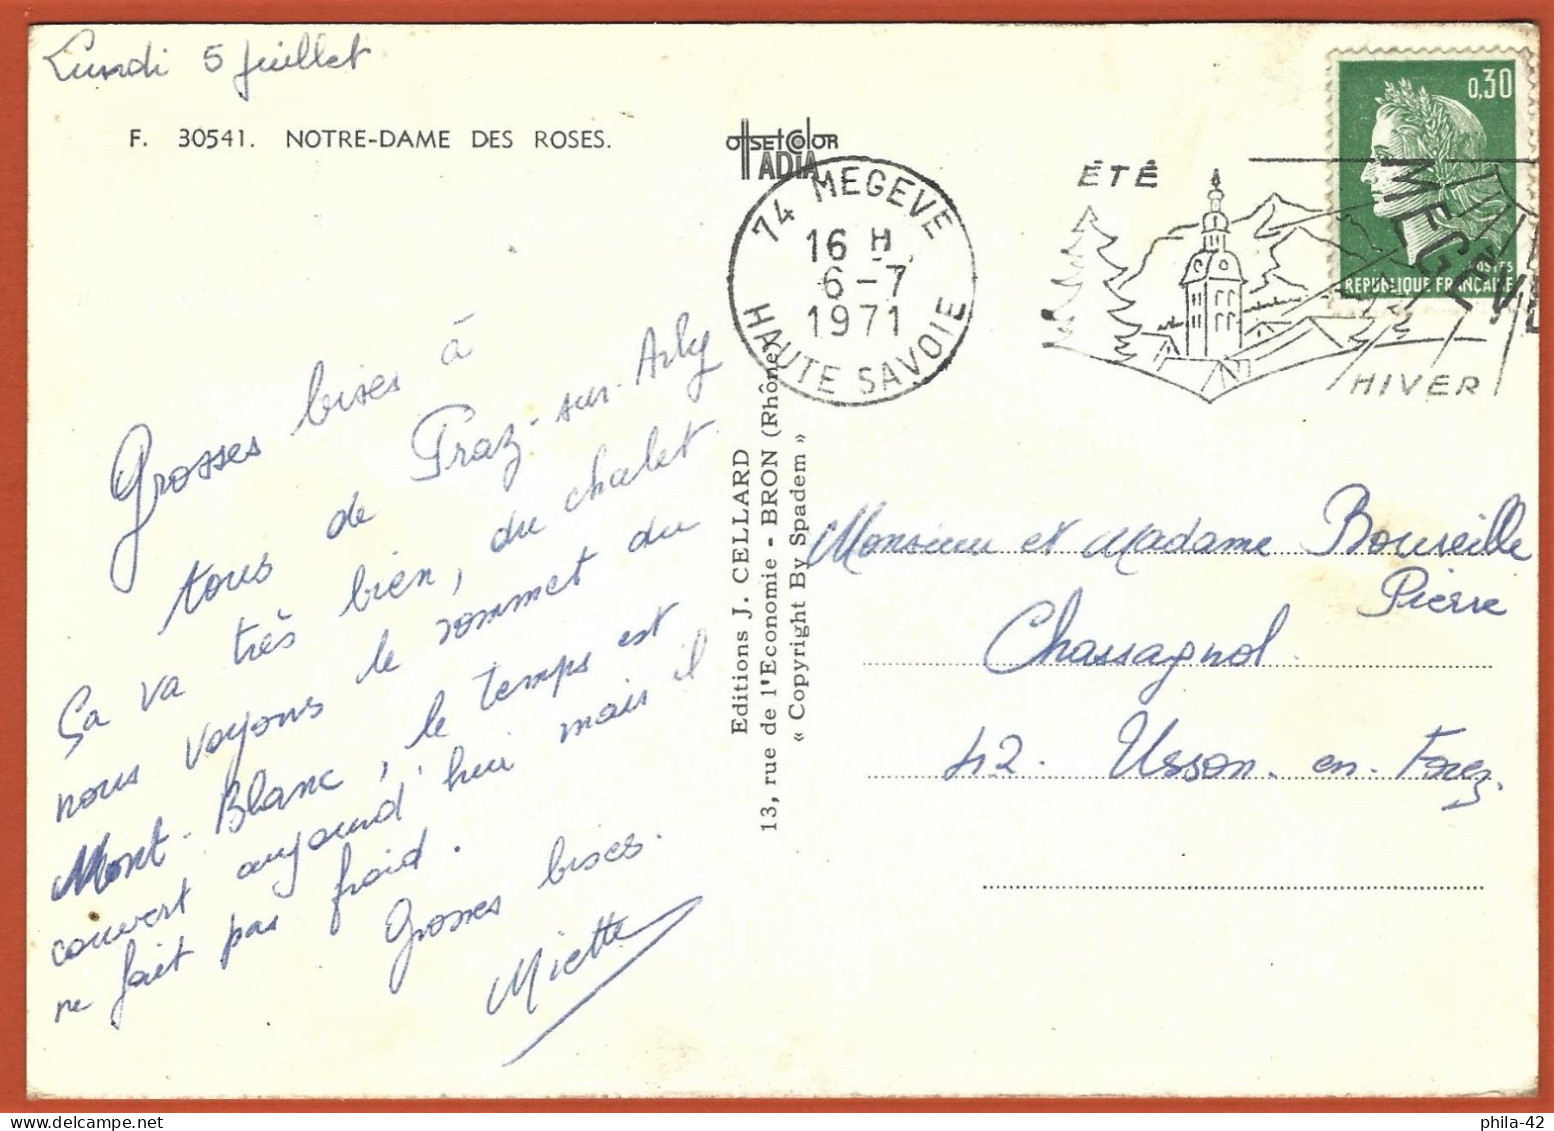 Lundi 5 juillet
F. 30541. NOTRE-DAME DES ROSES.
OFFSETCOLOR
ADIA
74 MEGEVE
16 H
6-7
1971
HAUTE SAVOIE
ÉTÉ
MEGEVE
HIVER
0,30
POSTES
REPUBLIQUE FRANÇAISE
Grosses bises à
tous de Praz-sur-Arly
Ça va très bien, du chalet
nous voyons le sommet du
Mont-Blanc, le temps est
couvert aujourd'hui mais il
ne fait pas froid.
Grosses bises.
Miette
Editions J. CELLARD
13, rue de l'Economie - BRON (Rhône)
« Copyright By Spadem »
Monsieur et Madame Boureille
Pierre
Chassagnol.
42. Usson-en-Forez.
phila-42